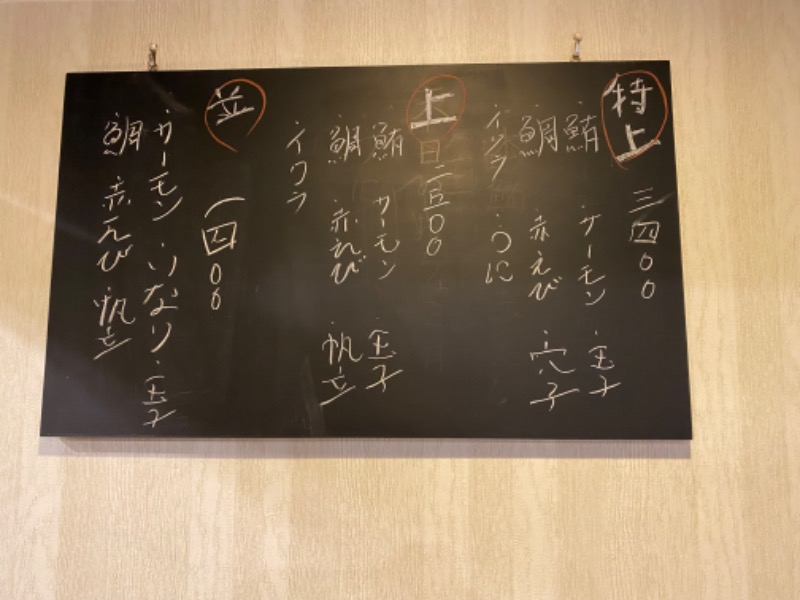 特上 三四00
・鮪 ・サーモン ・玉子
・鯛 ・赤えび ・穴子
・イクラ ・うに
上 二五00
・鮪 ・サーモン ・玉子
・鯛 ・赤えび ・帆立
・イクラ
並 一四00
・サーモン ・いなり ・玉子
・鯛 ・赤えび ・帆立